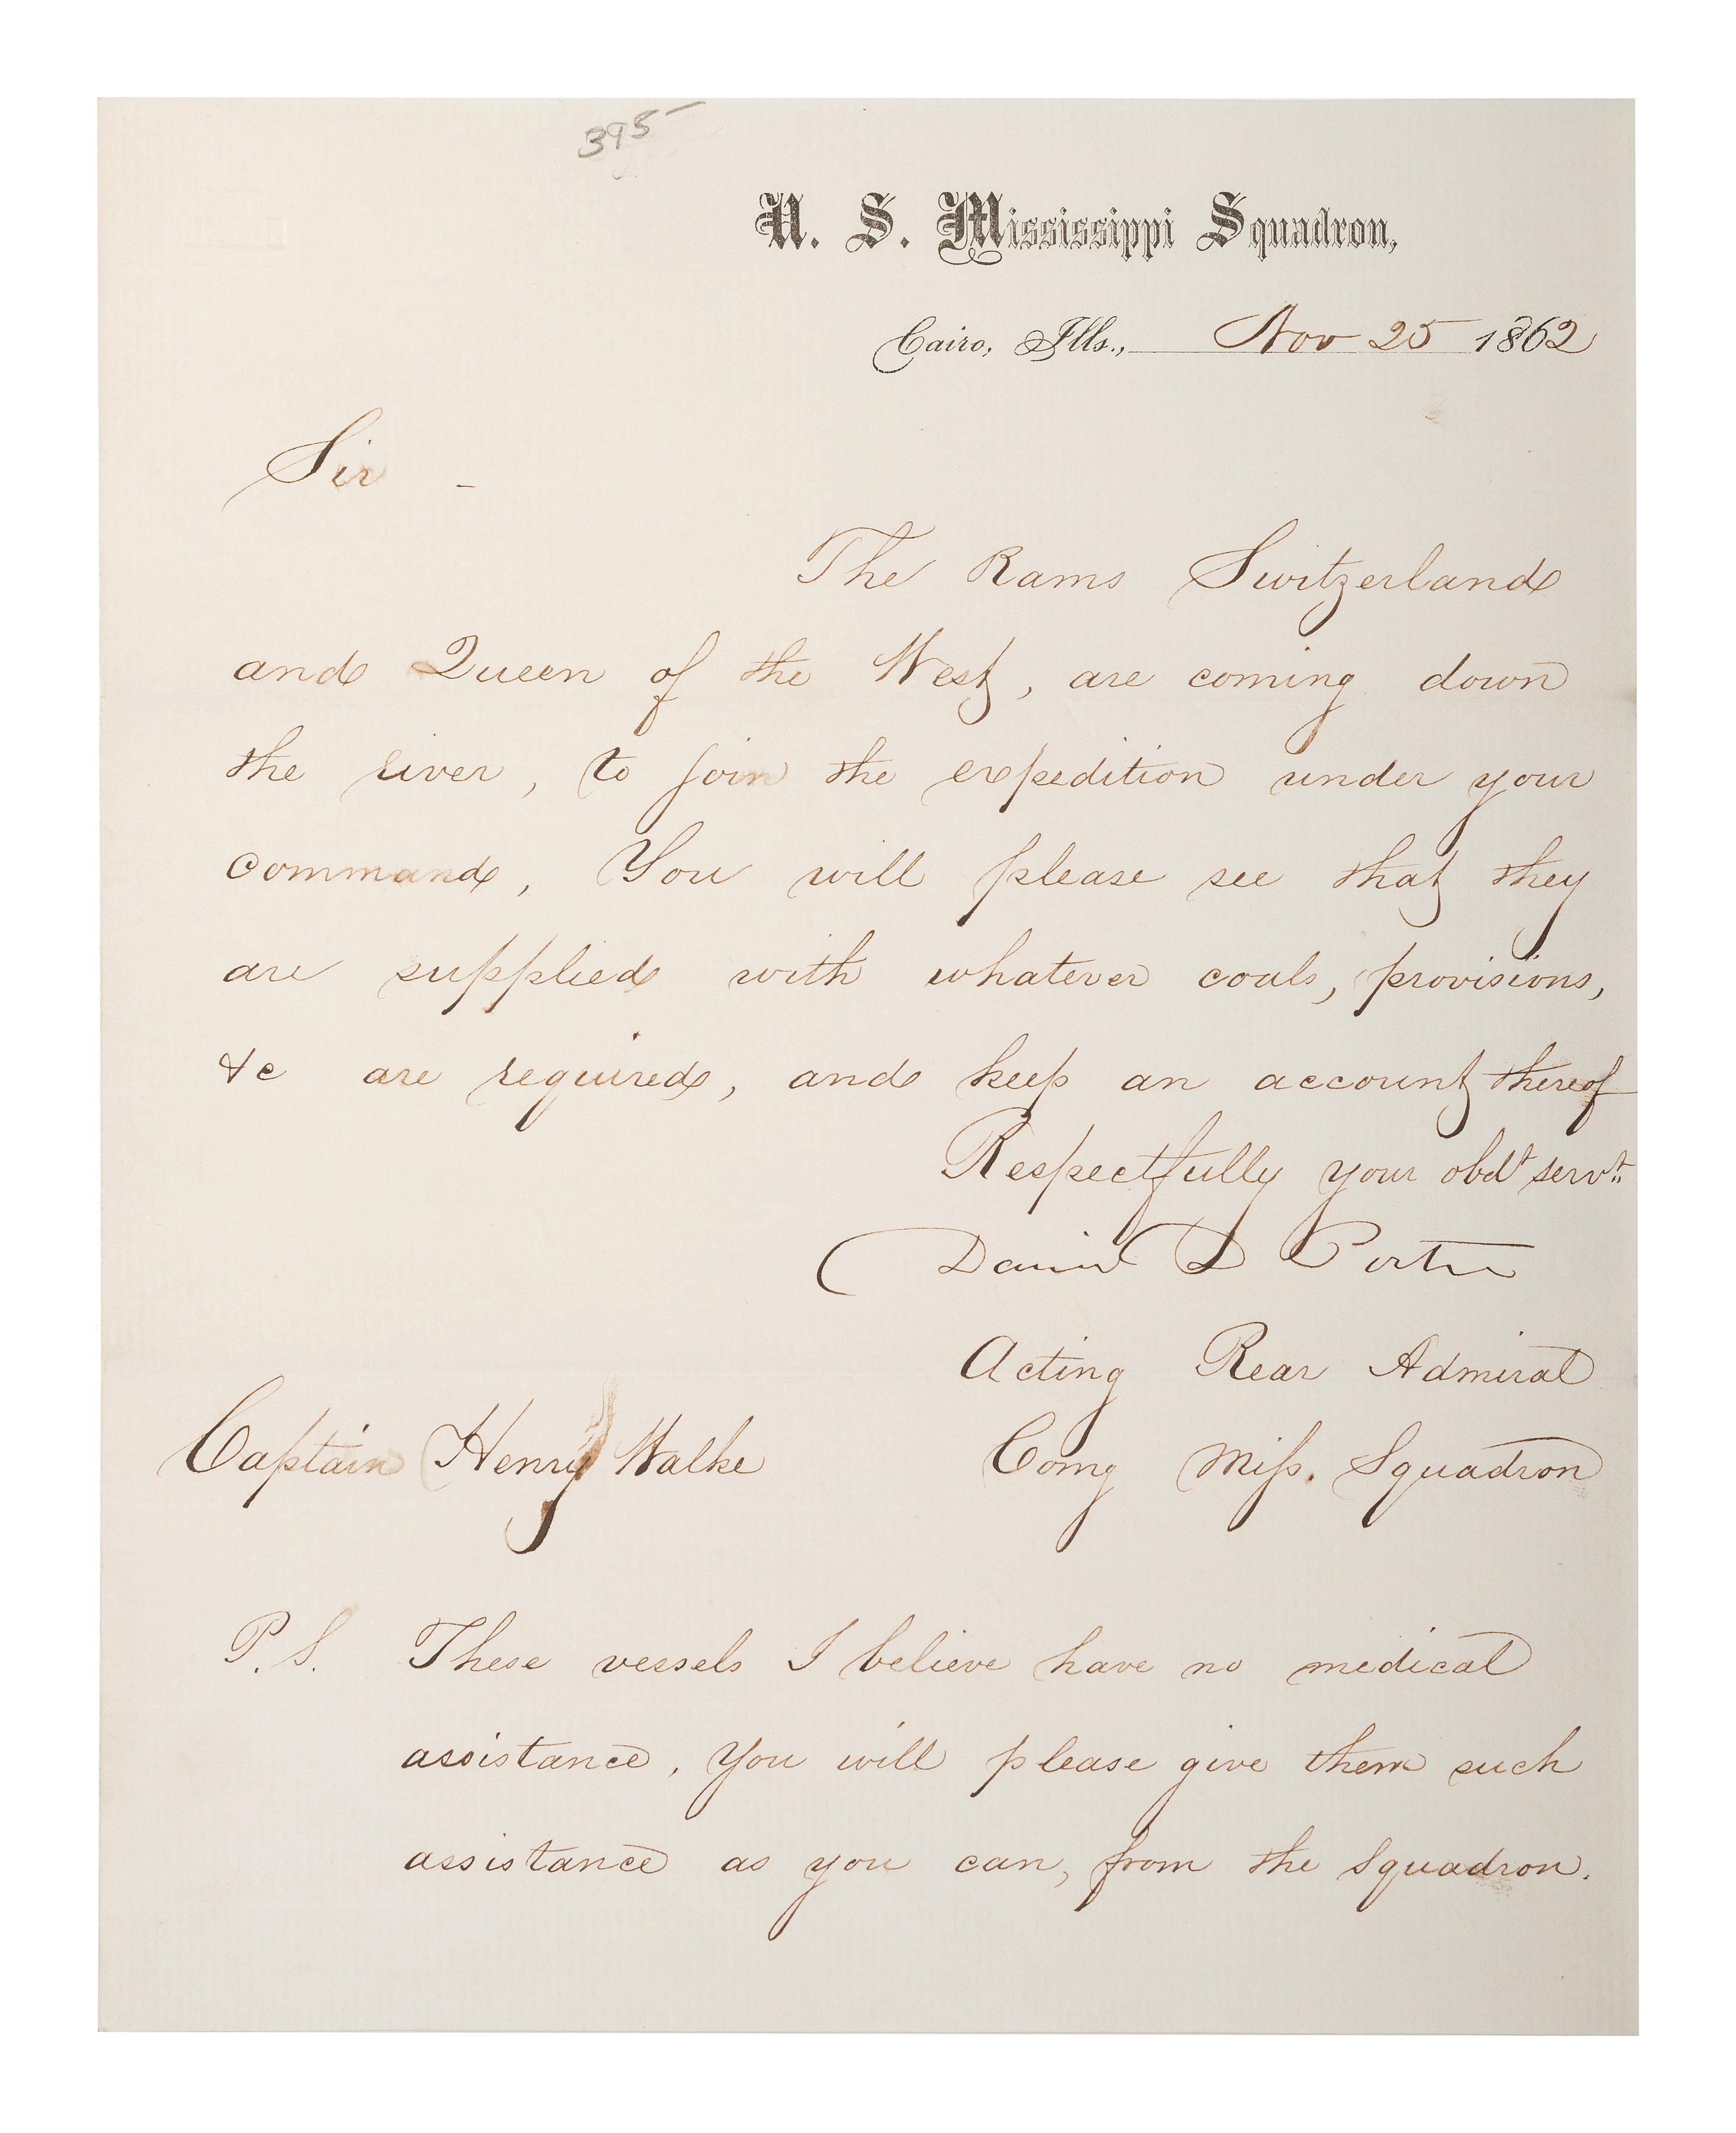 395-
U. S. Mississippi Squadron,
Cairo, Ills., Nov 25 1862
Sir -
The Rams Switzerland
and Queen of the West, are coming down
the river, to join the expedition under your
command, You will please see that they
are supplied with whatever coals, provisions,
&c are required, and keep an account thereof
Respectfully your obdt servt.
David D Porter
Acting Rear Admiral
Captain Henry Walke Comg Miss. Squadron
P.S. These vessels I believe have no medical
assistance, You will please give them such
assistance as you can, from the Squadron.